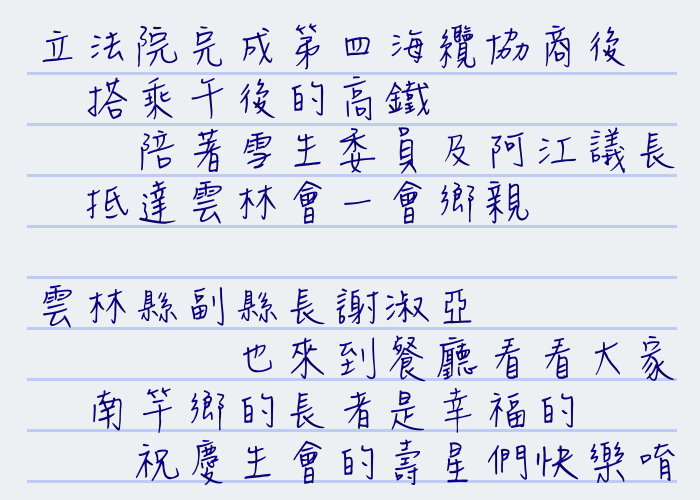 立法院完成第四海纜協商後
搭乘午後的高鐵
陪著雪生委員及阿江議長
抵達雲林會一會鄉親
雲林縣副縣長謝淑亞
也來到餐廳看看大家
南竿鄉的長者是幸福的
祝慶生會的壽星們快樂唷